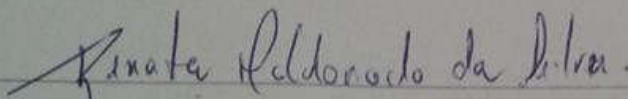 Renata Maldonado da Silva